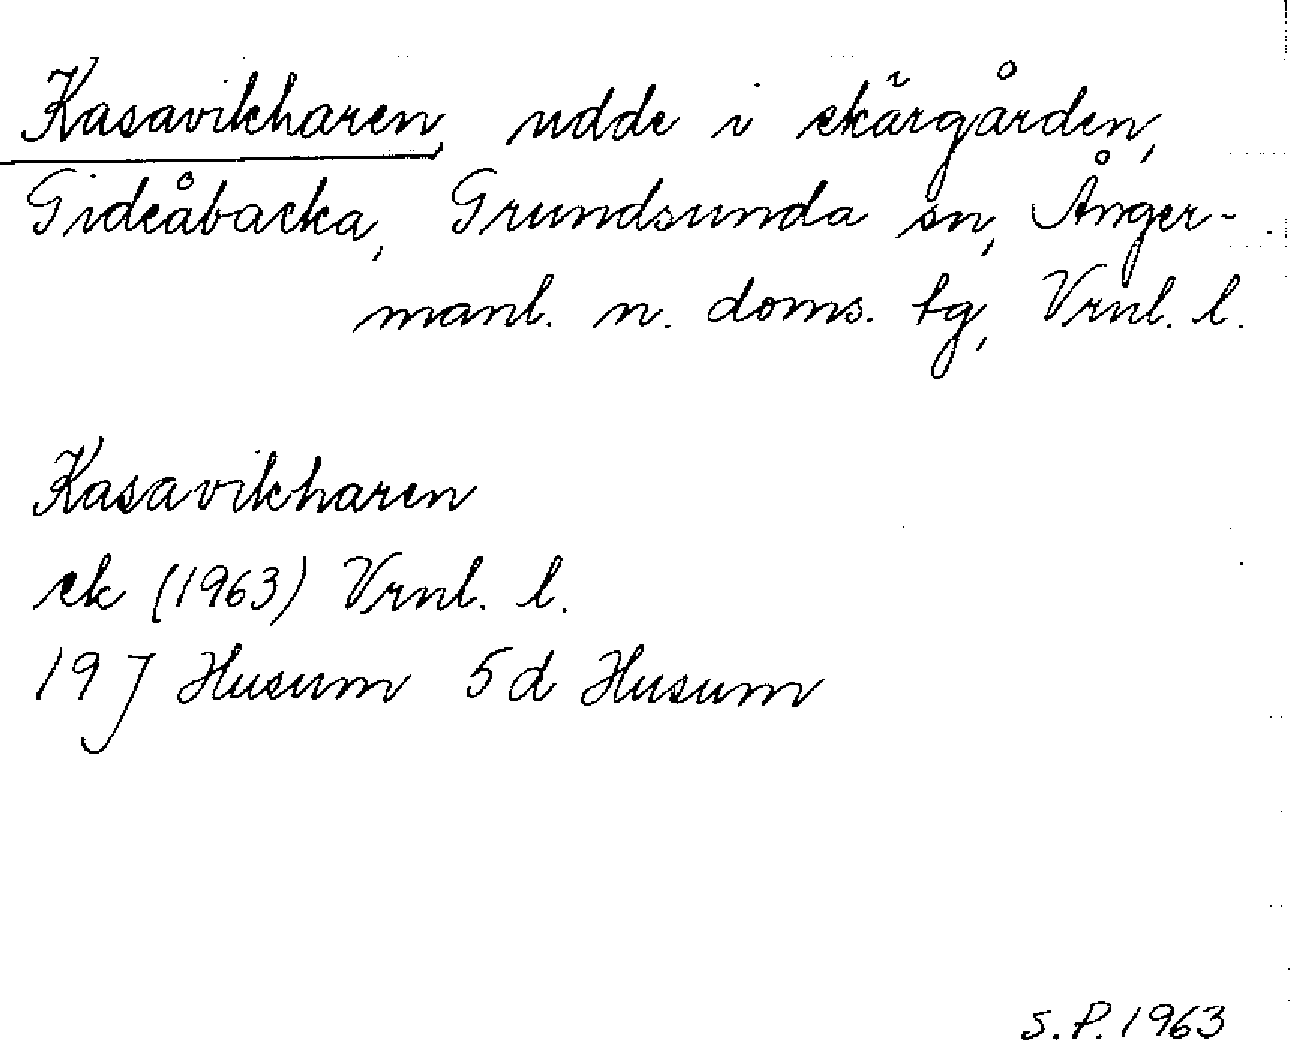 Kasavikharen, udde i skärgården,
Gideåbacka, Grundsunda sn, Ånger-
manl. n. doms. tg, Vrnl. l.
Kasavikharen
ek (1963) Vrnl. l.
19 J Husum 5d Husum
S.P. 1963